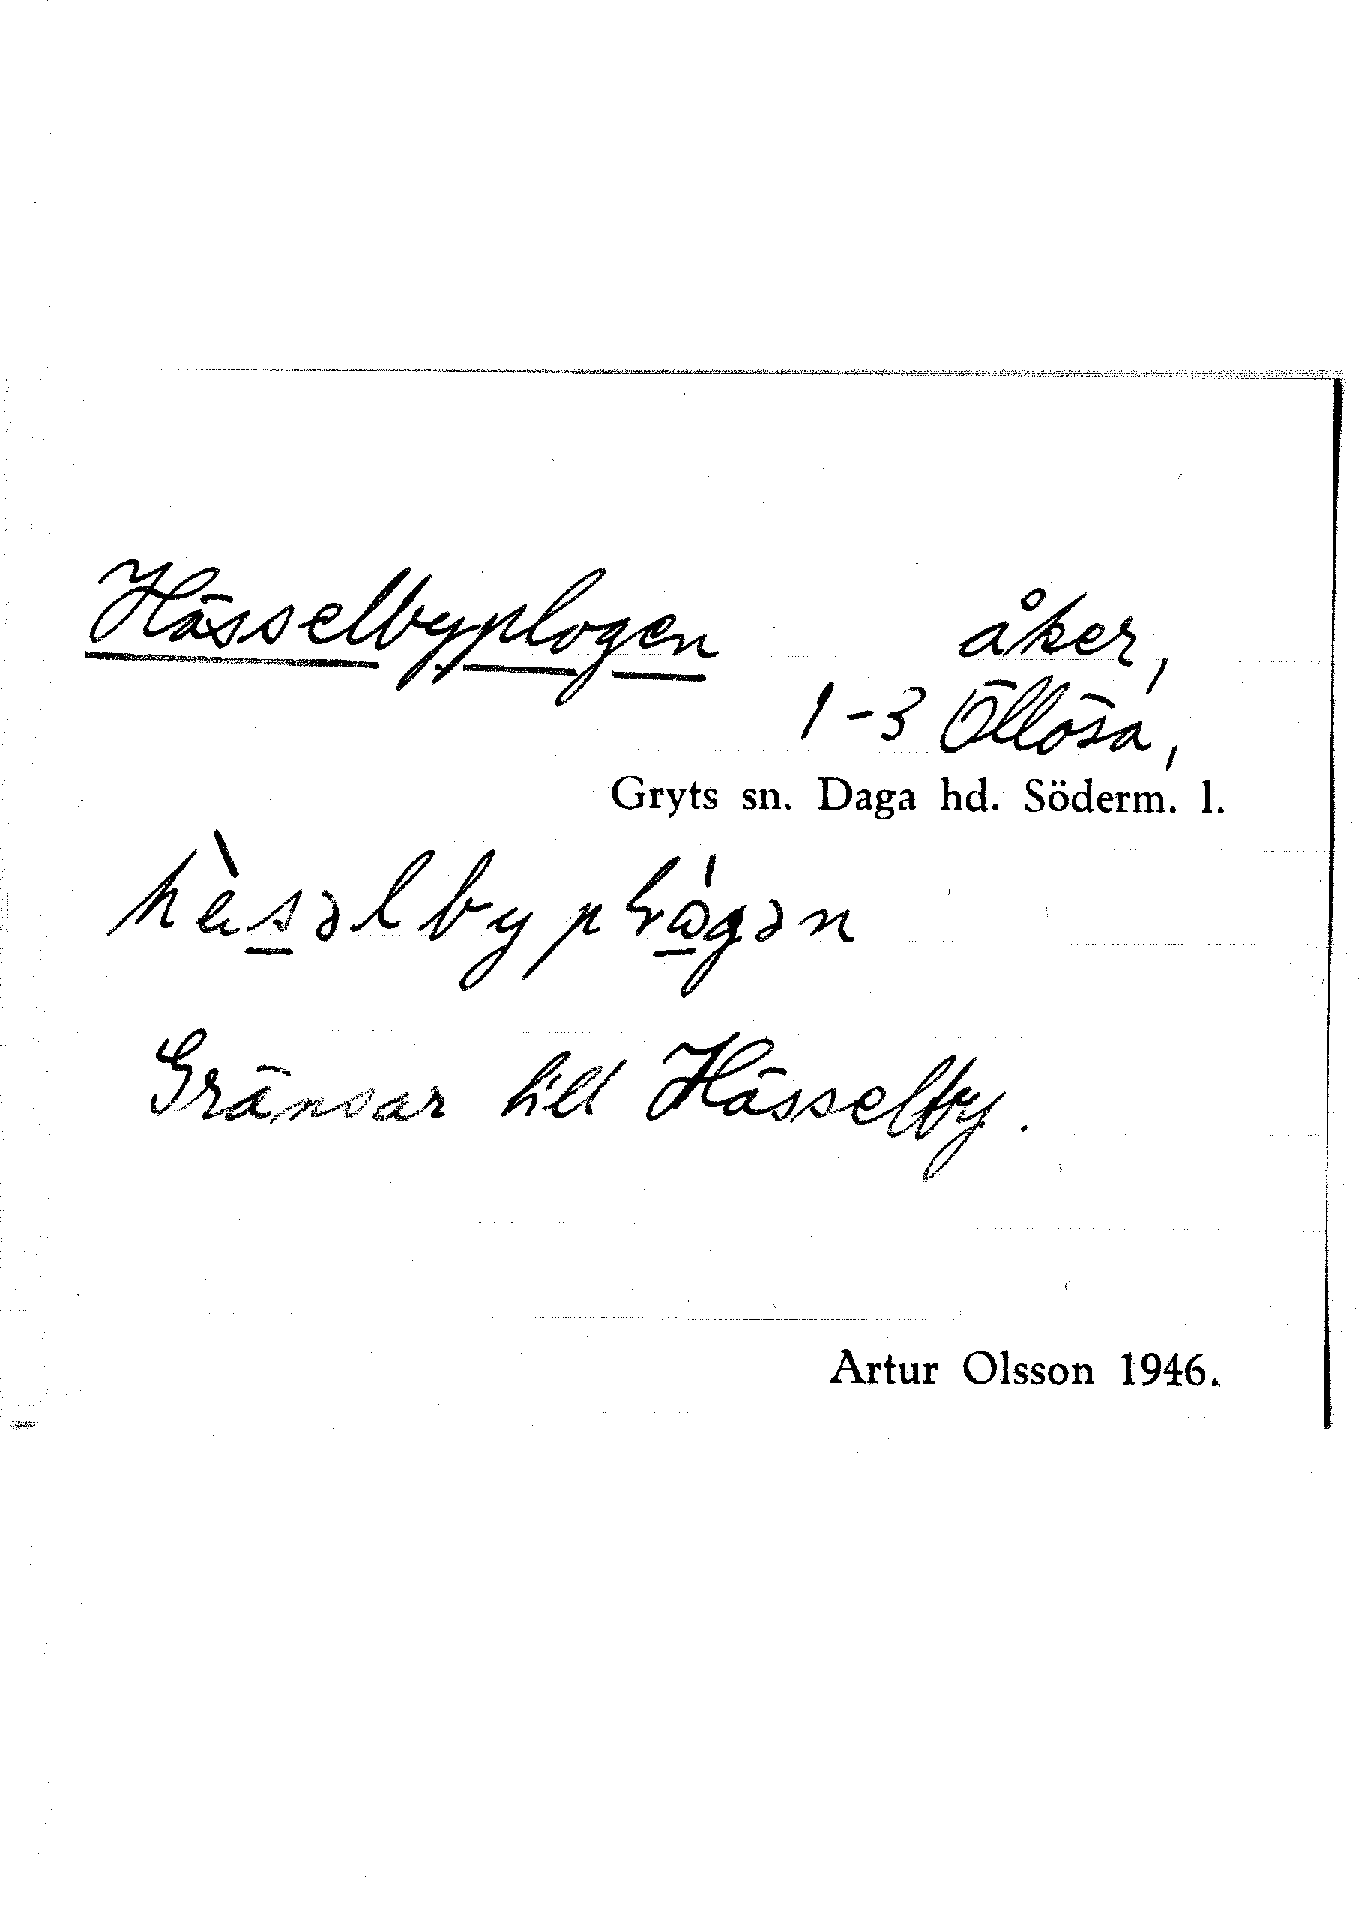 Hässelbyplogen åker,
1-3 Öllösa,
Gryts sn. Daga hd. Söderm. l.
Gränsar till Hässelby.
Artur Olsson 1946.